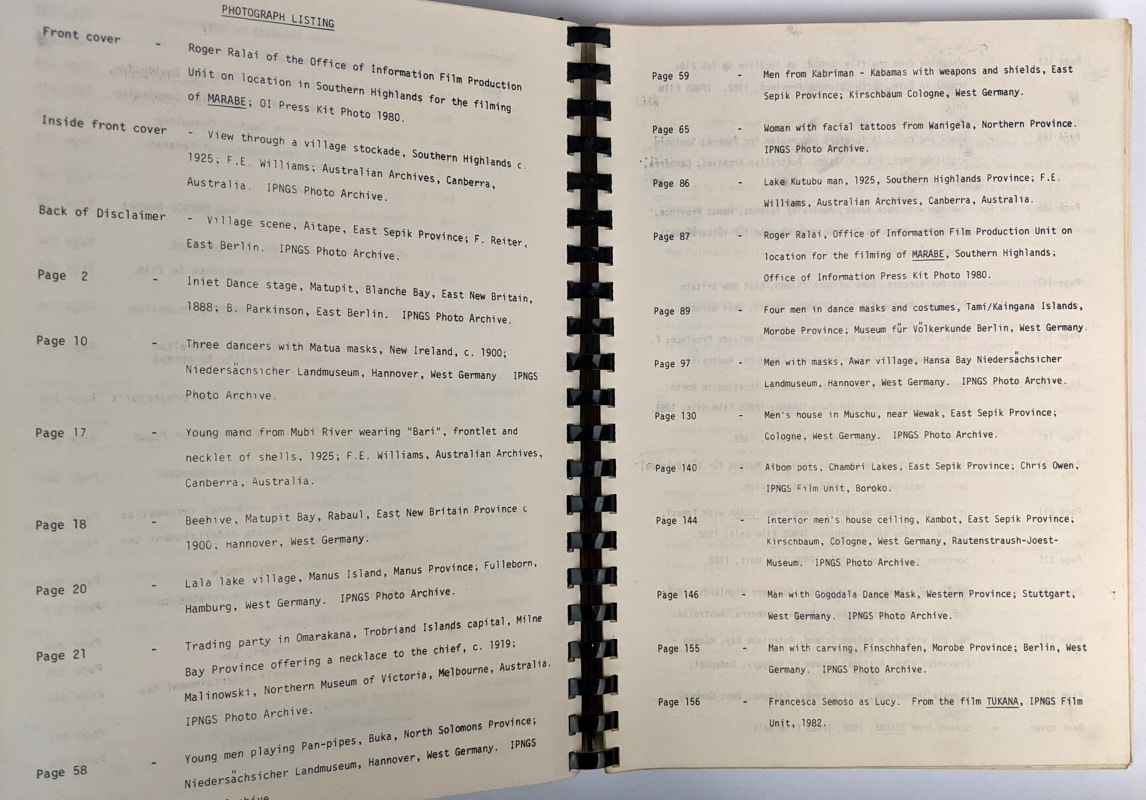 PHOTOGRAPH LISTING
Front cover - Roger Ralai of the Office of Information Film Production
Unit on location in Southern Highlands for the filming
of MARABE; OI Press Kit Photo 1980.
Inside front cover - View through a village stockade, Southern Highlands c.
1925; F.E. Williams; Australian Archives, Canberra,
Australia. IPNGS Photo Archive.
Back of Disclaimer - Village scene, Aitape, East Sepik Province; F. Reiter,
East Berlin. IPNGS Photo Archive.
Page 2 - Iniet Dance stage, Matupit, Blanche Bay, East New Britain,
1888; B. Parkinson, East Berlin. IPNGS Photo Archive.
Page 10 - Three dancers with Matua masks, New Ireland, c. 1900;
Niedersächsicher Landmuseum, Hannover, West Germany IPNGS
Photo Archive.
Page 17 - Young mand from Mubi River wearing "Bari", frontlet and
necklet of shells, 1925; F.E. Williams, Australian Archives,
Canberra, Australia.
Page 18 - Beehive, Matupit Bay, Rabaul, East New Britain Province c
1900; Hannover, West Germany.
Page 20 - Lala lake village, Manus Island, Manus Province; Fulleborn,
Hamburg, West Germany. IPNGS Photo Archive.
Page 21 - Trading party in Omarakana, Trobriand Islands capital, Milne
Bay Province offering a necklace to the chief, c. 1919;
Malinowski, Northern Museum of Victoria, Melbourne, Australia.
IPNGS Photo Archive.
Page 58 - Young men playing Pan-pipes, Buka, North Solomons Province;
Niedersächsicher Landmuseum, Hannover, West Germany. IPNGS
Page 59 - Men from Kabriman - Kabamas with weapons and shields, East
Sepik Province; Kirschbaum Cologne, West Germany.
Page 65 - Woman with facial tattoos from Wanigela, Northern Province.
IPNGS Photo Archive.
Page 86 - Lake Kutubu man, 1925, Southern Highlands Province; F.E.
Williams, Australian Archives, Canberra, Australia.
Page 87 - Roger Ralai, Office of Information Film Production Unit on
location for the filming of MARABE, Southern Highlands;
Office of Information Press Kit Photo 1980.
Page 89 - Four men in dance masks and costumes, Tami/Kaingana Islands,
Morobe Province; Museum für Völkerkunde Berlin, West Germany.
Page 97 - Men with masks, Awar village, Hansa Bay Niedersächsicher
Landmuseum, Hannover, West Germany. IPNGS Photo Archive.
Page 130 - Men's house in Muschu, near Wewak, East Sepik Province;
Cologne, West Germany. IPNGS Photo Archive.
Page 140 - Aibom pots, Chambri Lakes, East Sepik Province; Chris Owen,
IPNGS Film Unit, Boroko.
Page 144 - Interior men's house ceiling, Kambot, East Sepik Province;
Kirschbaum, Cologne, West Germany, Rautenstraush-Joest-
Museum. IPNGS Photo Archive.
Page 146 - Man with Gogodala Dance Mask, Western Province; Stuttgart,
West Germany. IPNGS Photo Archive.
Page 155 - Man with carving, Finschhafen, Morobe Province; Berlin, West
Germany. IPNGS Photo Archive.
Page 156 - Francesca Semoso as Lucy. From the film TUKANA, IPNGS Film
Unit, 1982.